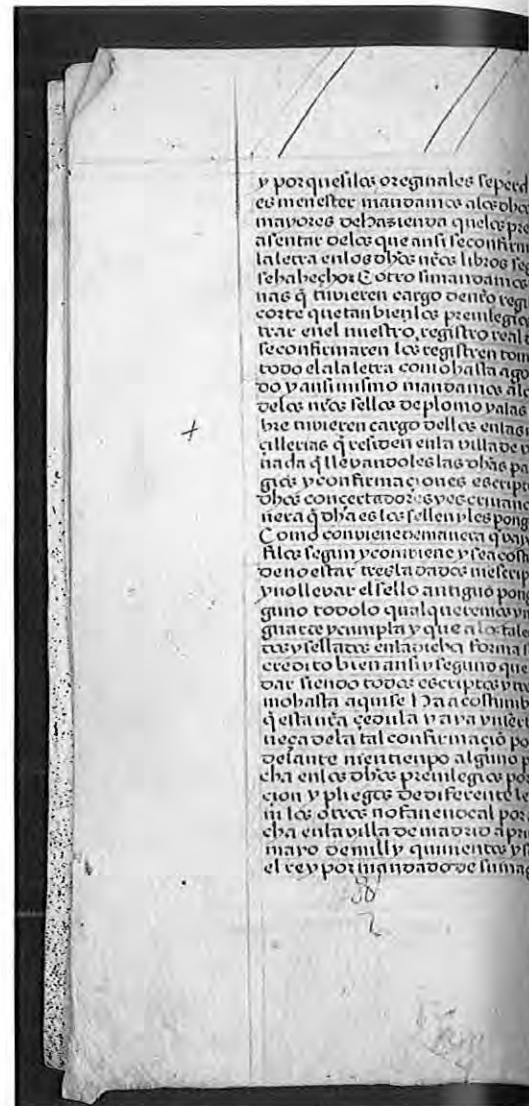 y porque si los oreginales se perd
es menester mandamos alos dhos
mayores de hazienda que los pre
asentar delos que ansi se confirm
la letra en los dhos nr̃os libros seg
se ha hecho E otro si mandamos
nas q̃ tuvieren cargo de nr̃o regi
corte que tan bien los previlegios
trar en el nuestro registro real
se confirmaren los registren tom
todo el a la letra como hasta ago
do y ansi mismo mandamos a lo
delos nr̃os sellos de plomo y alas
bre tuvieren cargo dellos en las
cillerias q̃ residen en la villa de v
nada q̃ llevandoles las dhãs pa
gios y confirmaçiones escripto
dhos concertadores y escrivano
nera q̃ dha es los sellen y les pong
Como conviene de manera q̃ vay
filos segun y conviene y sea cost
de no estar tresladados
y no llevar el sello antiguo pong
guno todo lo qual queremos y m
guarde y cumpla y que a los tale
tos y sellados en la dicha forma s
credito bien ansi y segund que
dar siendo todos escriptos y
mo hasta aqui se Ha acostumb
q̃ esta nr̃a çedula vaya ynsert
neça de la tal confirmaçiõ po
delante nien tienpo alguno p
cha en los dhos previlegios por
cion y pliegos de diferente le
ni los otros no fan en ocal por
cha en la villa de madrid a pri
mayo de mill y quinientos y s
el rey por mandado de su mag